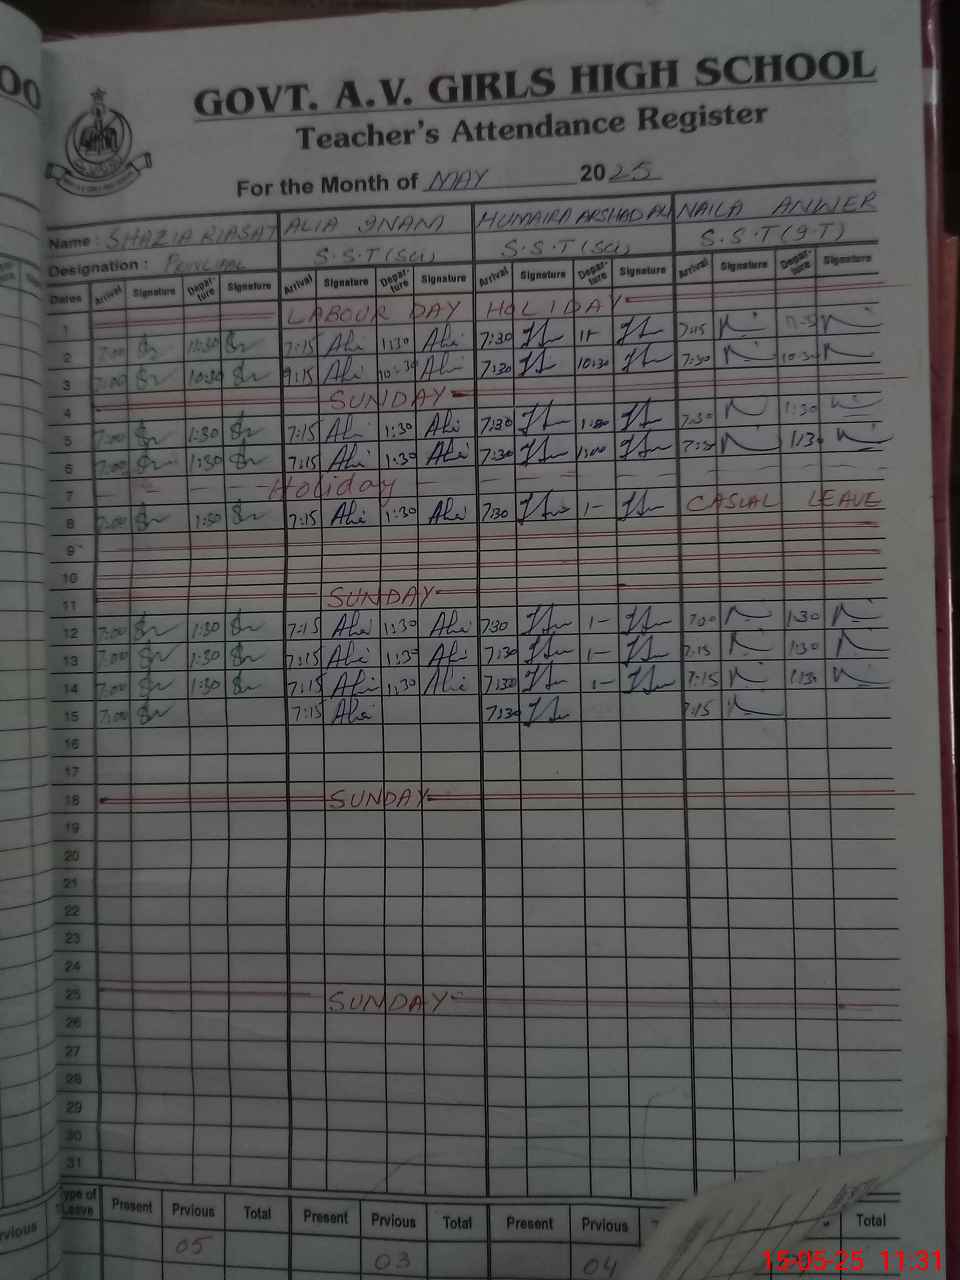 GOVT. A.V. GIRLS HIGH SCHOOL
Teacher's Attendance Register
For the Month of MAY 2025
Name : SHAZIA RIASAT ALIA INAM HUMAIRA ARSHAD ALI NAILA ANWER
Designation : PRINCIPAL S.S.T (Sci) S.S.T (Sci) S.S.T (I.T)
Dates Arrival Signature Depar-ture Signature Arrival Signature Depar-ture Signature Arrival Signature Depar-ture Signature Arrival Signature Depar-ture Signature
1 LABOUR DAY HOLIDAY
2 7:00 11:30 7:15 1:30 7:30 7:15
3 7:00 10:30 9:15 10:30 7:30 10:30 7:30 10:30
4 SUNDAY
5 7:00 1:30 7:15 1:30 7:30 1:00 7:30 1:30
6 7:00 1:30 7:15 1:30 7:30 1:00 7:30 1:30
7 Holiday
8 7:00 1:30 7:15 1:30 7:30 1- CASUAL LEAVE
9
10
11 SUNDAY
12 7:00 1:30 7:15 1:30 7:30 1- 7:00 1:30
13 7:00 1:30 7:15 1:30 7:30 1- 7:15 1:30
14 7:00 1:30 7:15 1:30 7:30 1- 7:15 1:30
15 7:00 7:15 7:30 7:15
16
17
18 SUNDAY
19
20
21
22
23
24
25 SUNDAY
26
27
28
29
30
31
Type of Leave Present Prvious Total Present Prvious Total Present Prvious Total
05 03 04
15-05-25 11:31